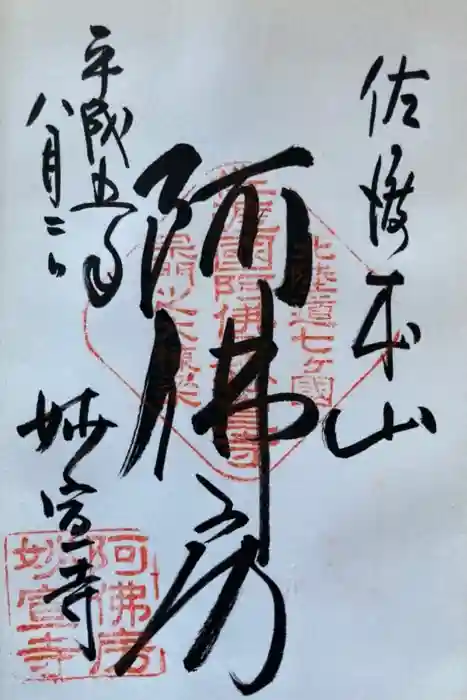 佐渡本山
阿佛房
平成五年
八月二日
妙宣寺
北陸道七ヶ國
佐渡國阿佛房妙宣寺
阿佛房
妙宣寺